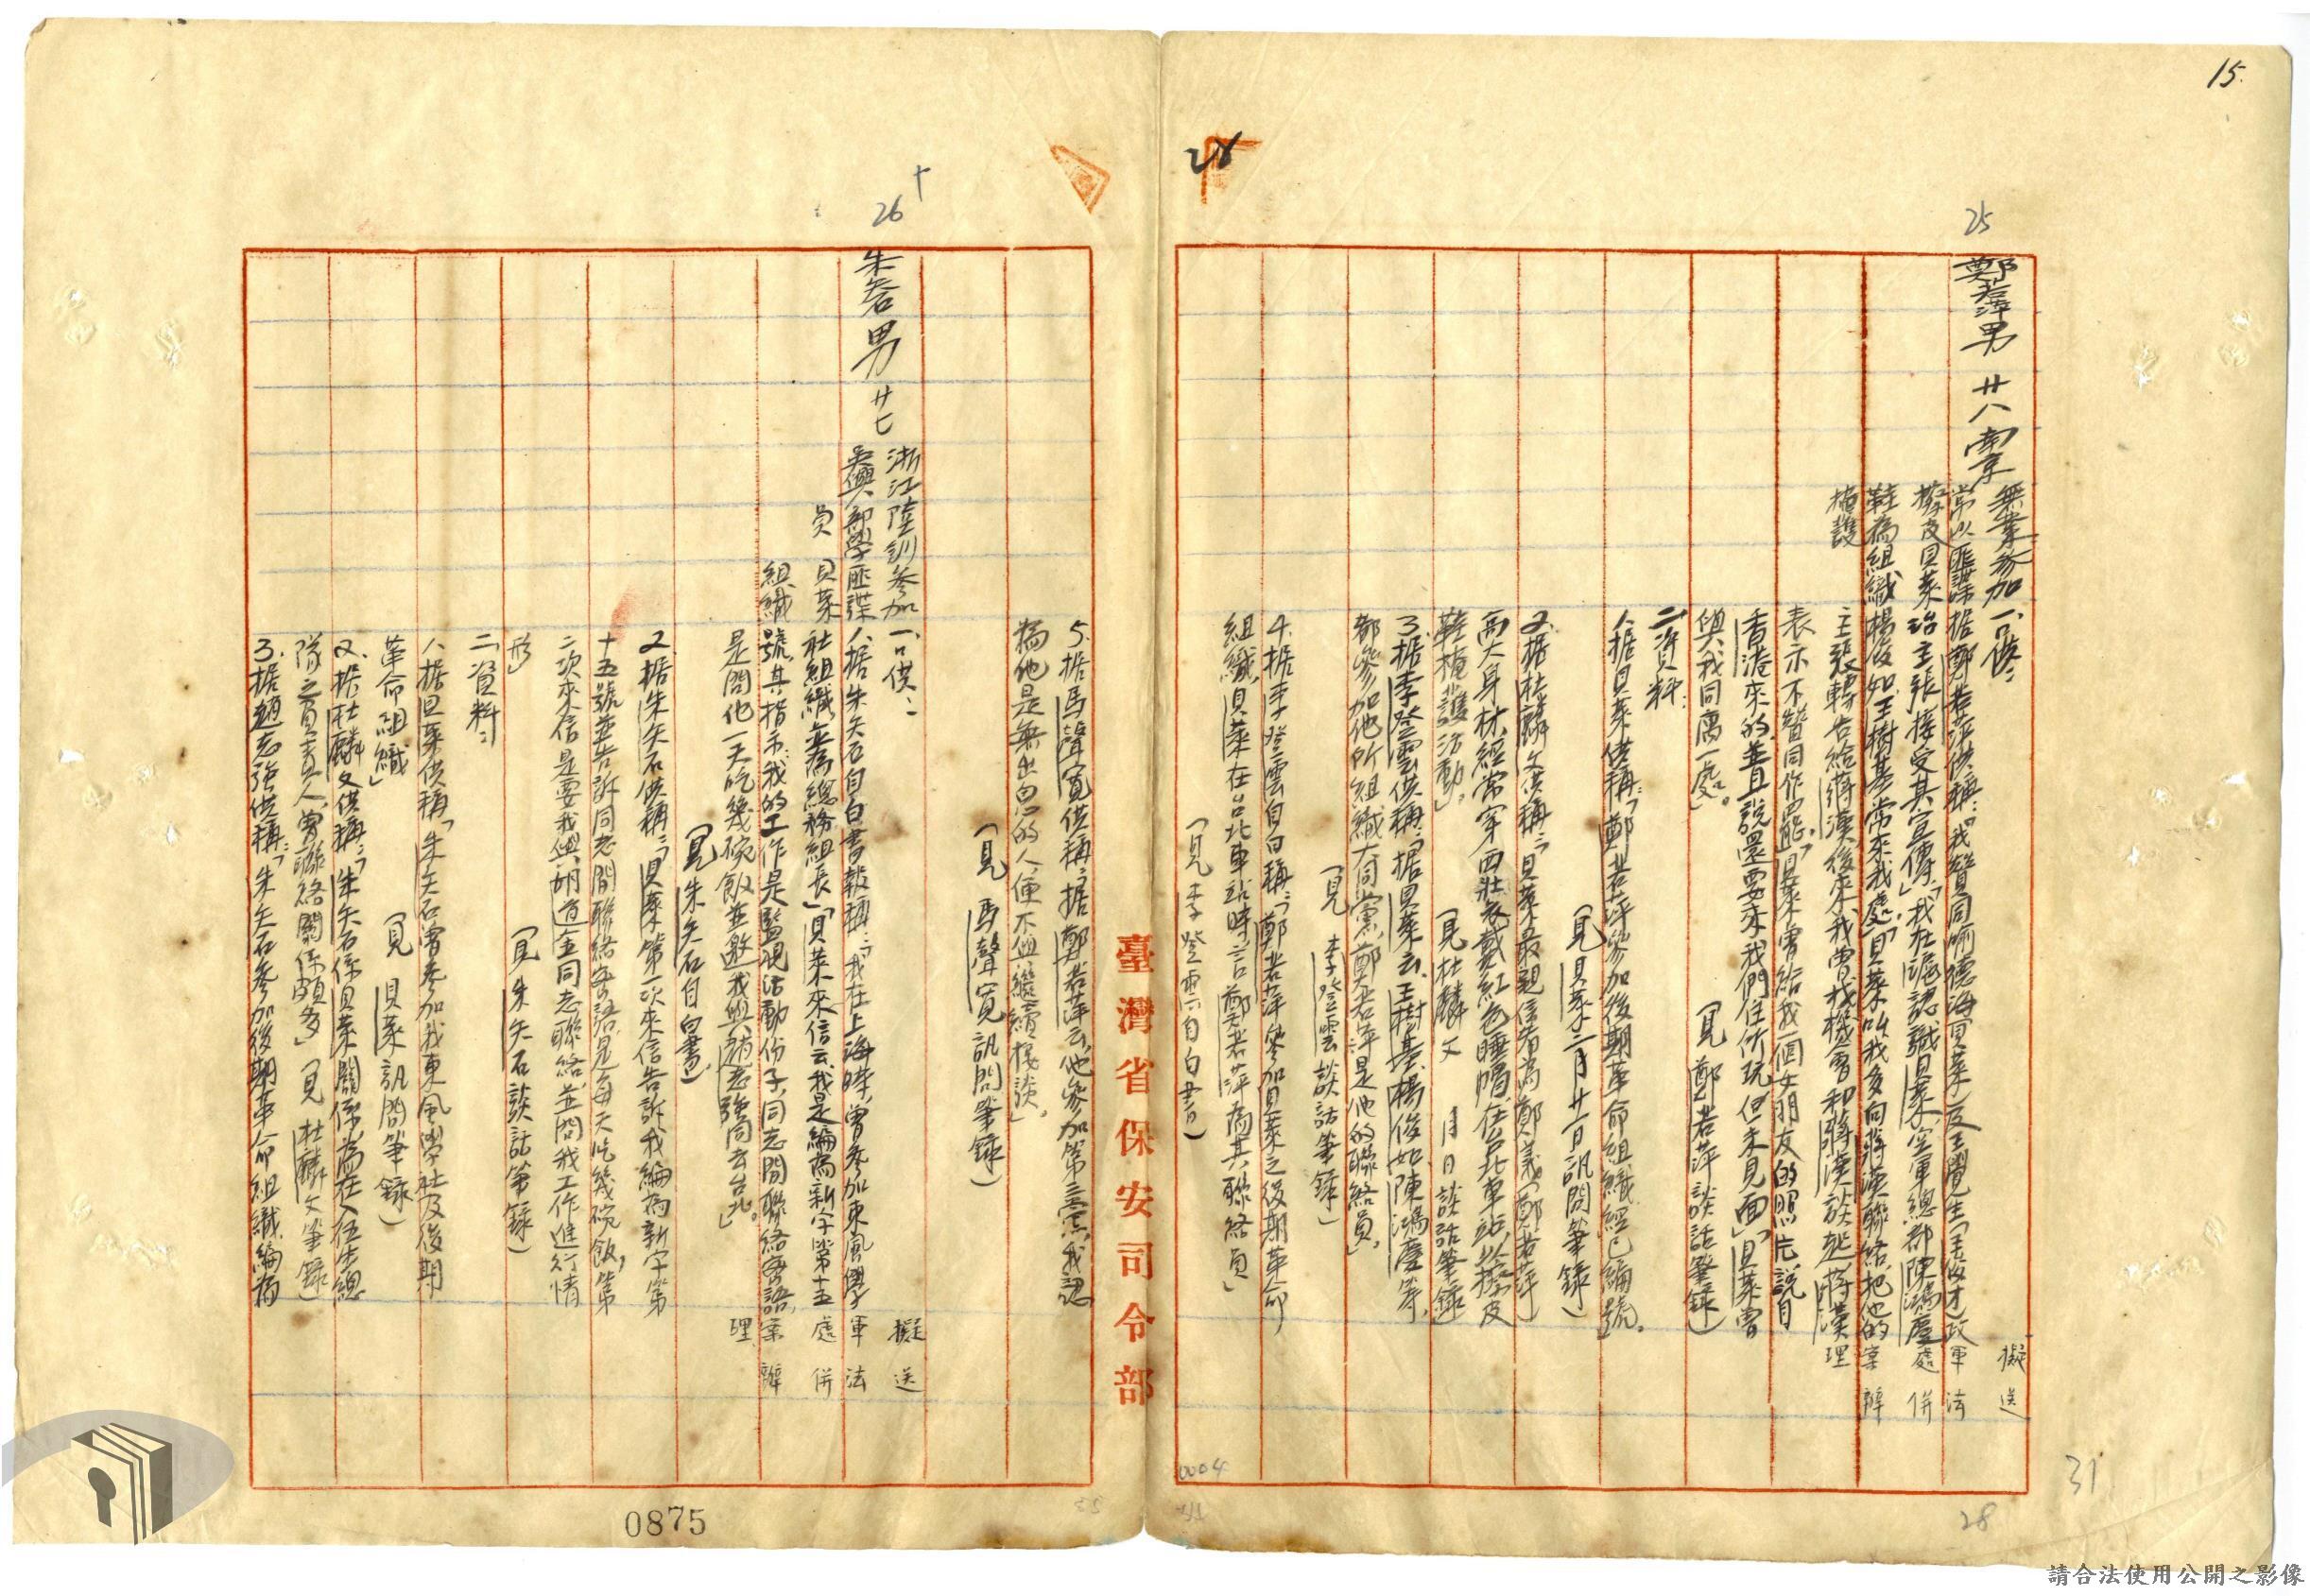 15.
28
25
鄭若萍男 廿八 南京
無業參加
常以匪諜
撥皮
鞋為組織
掩護
一、口供：
据鄭若萍供稱：「我贊同喻德海貝萊反王覺生(王俊才)政
貝萊治主張接受其宣傳」「我在滬認識貝萊、空軍總部陳鴻慶
楊俊如、王樹基常來我處」「貝萊叫我多向蔣漢聯絡、把他的
主張轉告給蔣漢後來我曾找機會和蔣漢談起蔣漢
表示不贊同作罷」「貝萊曾給我一個女朋友的照片說自
香港來的並且說還要來我們住所玩但未見面」「貝萊曾
與我同寓一處」。
(見 鄭若萍談話筆錄)
二、資料：
1.据貝萊供稱：「鄭若萍參加後期革命組織經已編號。
(見 貝萊二月廿一日訊問筆錄)
2.据杜麟文供稱：「貝萊最親信者為鄭義(鄭若萍)
高大身材、經常穿西裝衣戴紅色睡帽在台北車站以擦皮
鞋掩護活動」。
(見杜麟文 月 日談話筆錄
3.据李登雲供稱：「據貝萊云、王樹基、楊俊如、陳鴻慶等、
都參加他所組織大同黨、鄭若萍是他的聯絡員」
(見 李登雲談話筆錄」
4.据李登雲自白稱：「鄭若萍參加貝萊之後期革命
組織、貝萊在台北車站時言鄭若萍為其聯絡員」
(見 李登雲六自白書)
擬送
軍法
處併
案辦
理
0004
31
28
臺灣省保安司令部
5.据馬聲寬供稱；「據鄭若萍云、他參加第三黨、我認
為他是無出息的人、便不與繼續接談。」
(見 馬聲寬訊問筆錄)
26
朱矢石 男 廿七
浙江
吳興人
陸訓
部學
員
參加
匪諜
貝萊
組織
一、口供：
1.据朱矢石自白書報稱：「我在上海時、曾參加東風學
社組織、並為總務組長」「貝萊來信云、我是編為新字第十五
號、其指示：我的工作是監視活動份子、同志間聯絡密語、
是問他一天吃幾碗飯並邀我與趙志強同去台北。」
(見朱矢石自白書)
2.据朱矢石供稱：「貝萊第一次來信告訴我編為新字第
十五號並告訴同志間聯絡密語是每天吃幾碗飯、第
二次來信是要我與胡道全同志聯絡、並問我工作進行情
形」
(見朱矢石談話筆錄)
二、資料：
1.据貝萊供稱「朱矢石曾參加我東風學社及後期
革命組織」
(見 貝萊訊問筆錄)
2.据杜麟文供稱：「朱矢石係貝萊關係為在入伍生總
隊之負責人、曾聯絡關係頗多」(見 杜麟文筆錄)
3.据趙志強供稱：「朱矢石參加後期革命組織編為
擬送
軍法
處併
案辦
理
0875
請合法使用公開之影像